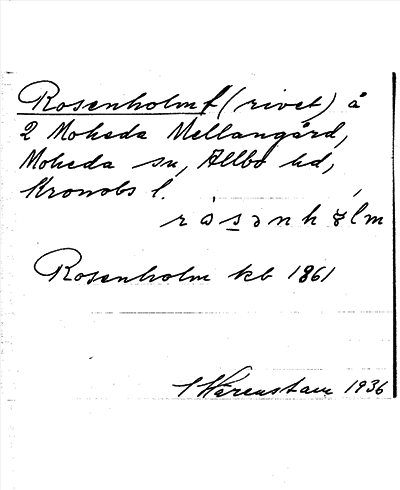 Rosenholm f (rivet) å
2 Moheda Mellangård,
Moheda sn, Allbo hd,
Kronobs l.
Rosenholm kb 1861
1936